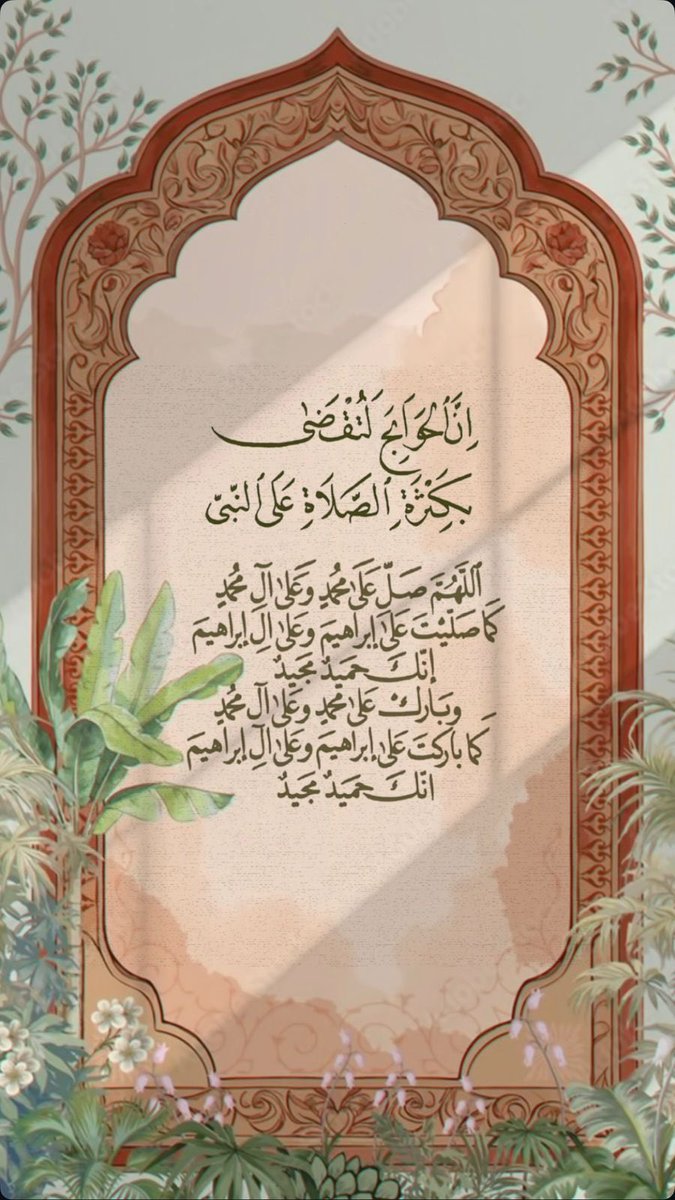 اِنَّ ٱلحَوَائِجَ لَتُقْضَىٰ
بِكَثْرَةِ ٱلصَّلَاةِ عَلَى ٱلنَّبِيّ
ٱللَّهُمَّ صَلِّ عَلَىٰ مُحَمَّدٍ وَعَلىٰ آلِ مُحَمَّدٍ
كَمَا صَلَّيْتَ عَلىٰ إبراهيمَ وعَلىٰ آلِ إبراهيمَ
إنّكَ حَمَيدٌ مَجيدٌ
وبَارِكْ عَلىٰ محمدٍ وعَلىٰ آلِ محمدٍ
كَمَا باركتَ عَلىٰ إبراهيمَ وعَلىٰ آلِ إبراهيمَ
انّكَ حَمَيدٌ مَجيدٌ